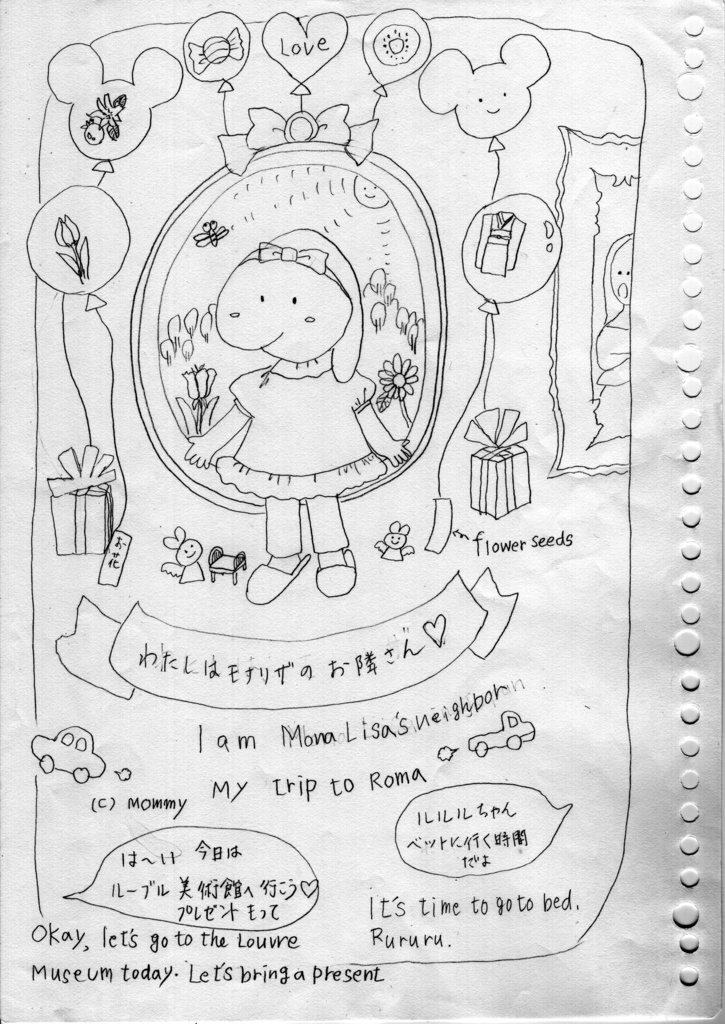 Love
お花
flower seeds
わたしはモナリザのお隣さん♡
I am Mona Lisa's neighbor
My trip to Roma
(C) Mommy
ルルルちゃん
ベットに行く時間
だよ
は〜い 今日は
ルーブル美術館へ行こう♡
プレゼントもって
It's time to go to bed.
Rururu.
Okay, let's go to the Louvre
Museum today. Let's bring a present